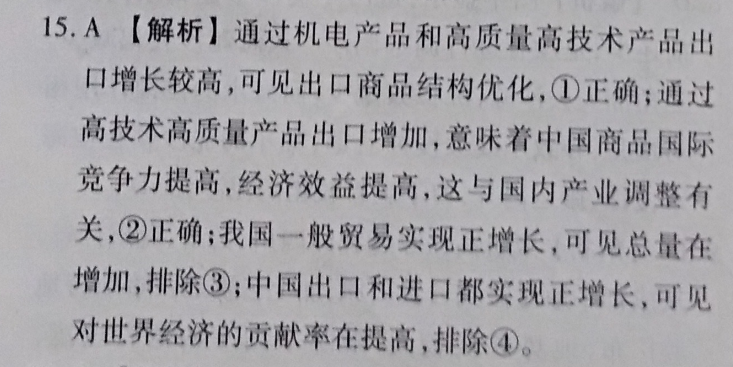 15. A 【解析】通过机电产品和高质量高技术产品出
口增长较高,可见出口商品结构优化,①正确;通过
高技术高质量产品出口增加,意味着中国商品国际
竞争力提高,经济效益提高,这与国内产业调整有
关,②正确;我国一般贸易实现正增长,可见总量在
增加,排除③;中国出口和进口都实现正增长,可见
对世界经济的贡献率在提高,排除④。